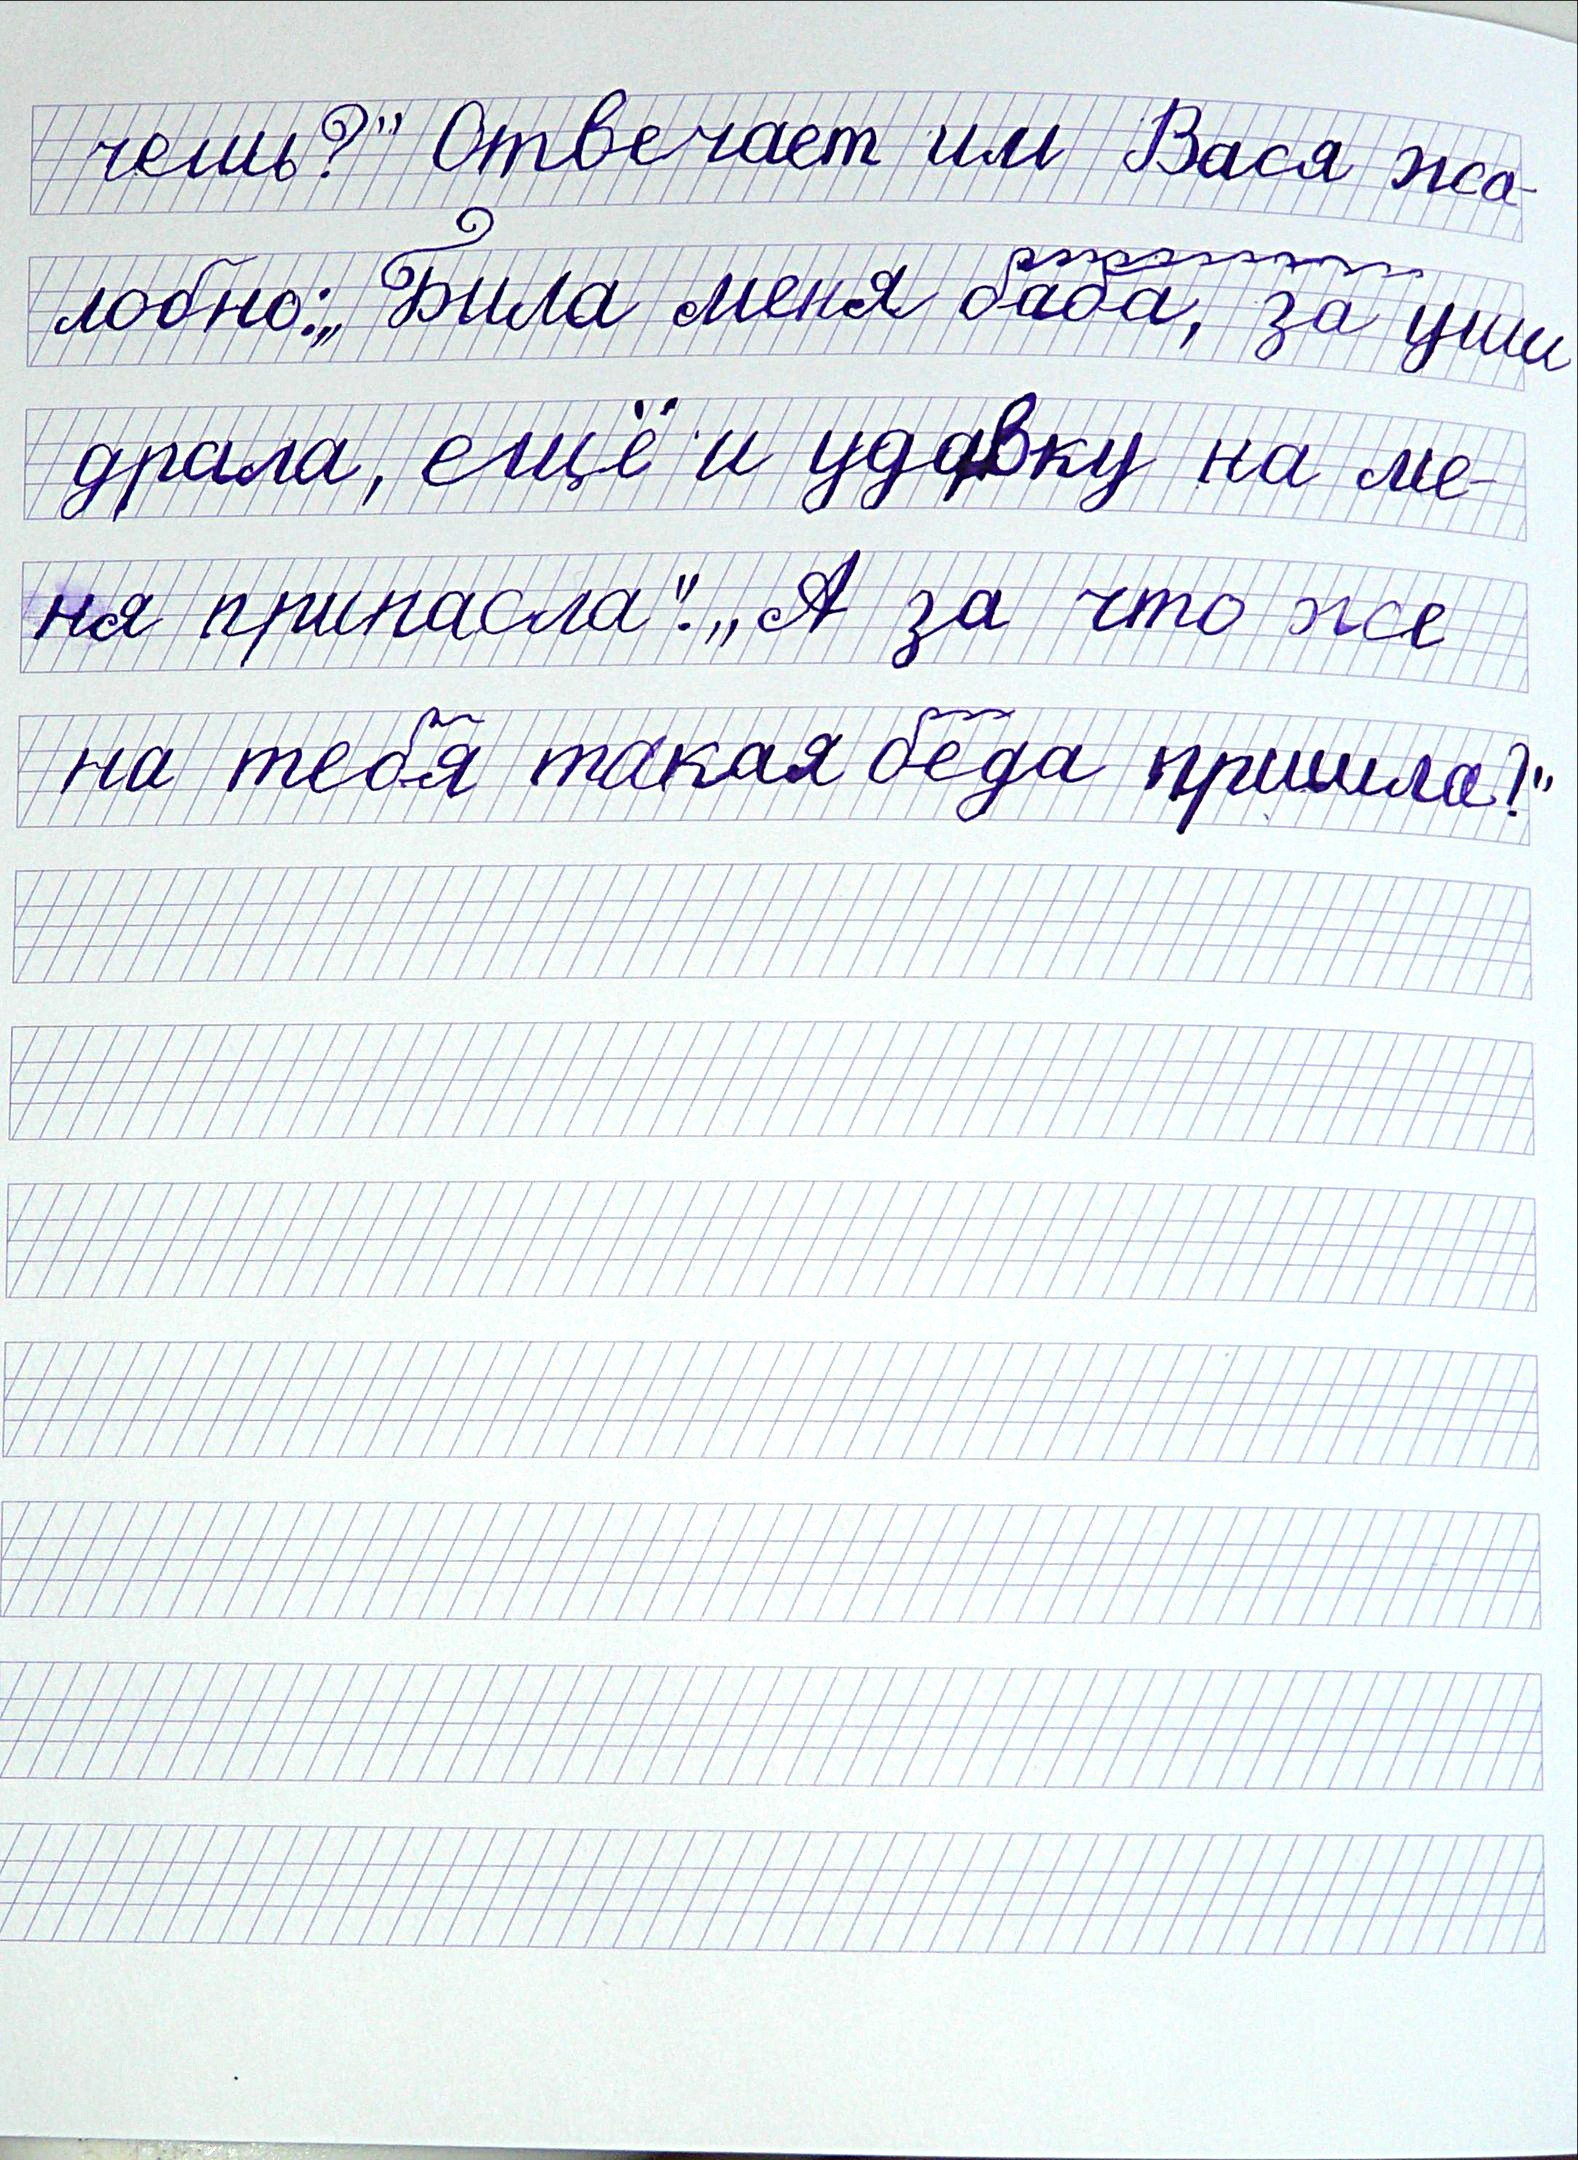 чешь?" Отвечает им Вася жа-
лобно:„Била меня баба, за уши
драла, ещё и удавку на ме-
ня припасла".„А за что же
на тебя такая беда пришла?"